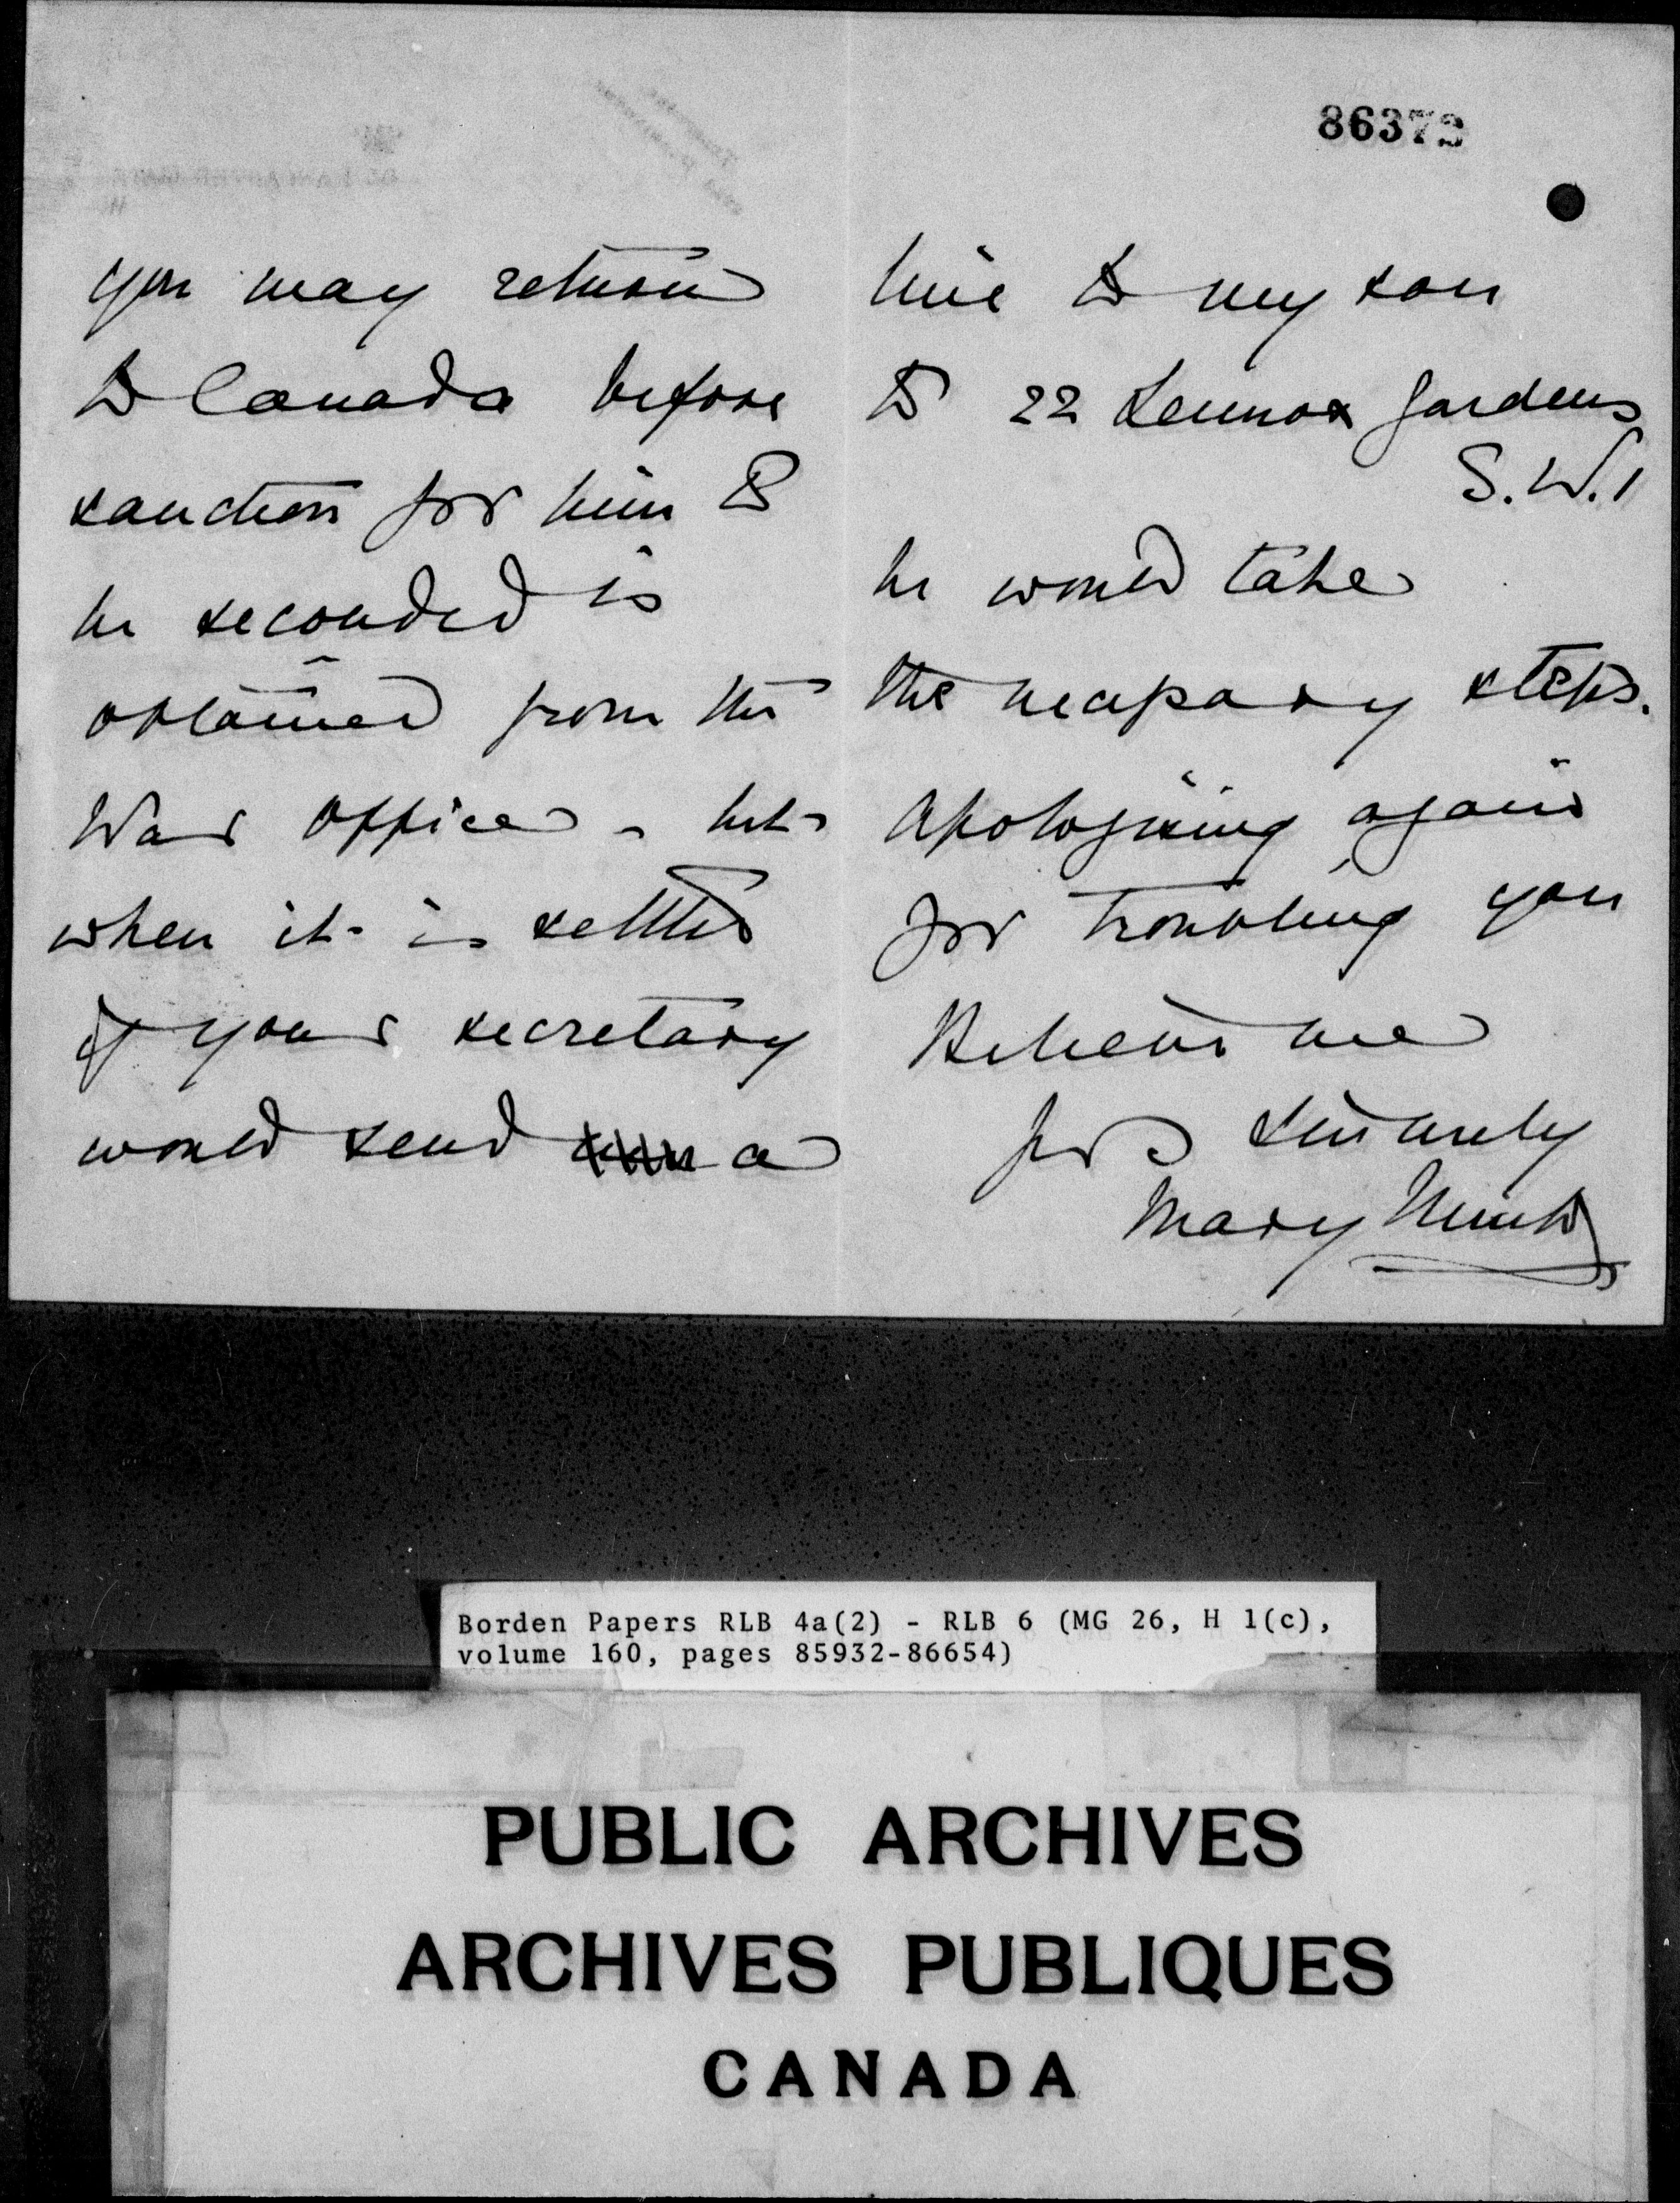 86373
you may return
to Canada before
sanction for him to
be seconded is
obtained from the
War Office - but
when it is settled
if your secretary
would send a
line to my son
to 22 Lennox Gardens
S.W.1
he would take
the necessary steps.
Apologising again
for troubling you
Believe me
Yrs sincerely
Mary Minto
Borden Papers RLB 4a(2) - RLB 6 (MG 26, H 1(c),
volume 160, pages 85932-86654)
PUBLIC ARCHIVES
ARCHIVES PUBLIQUES
CANADA